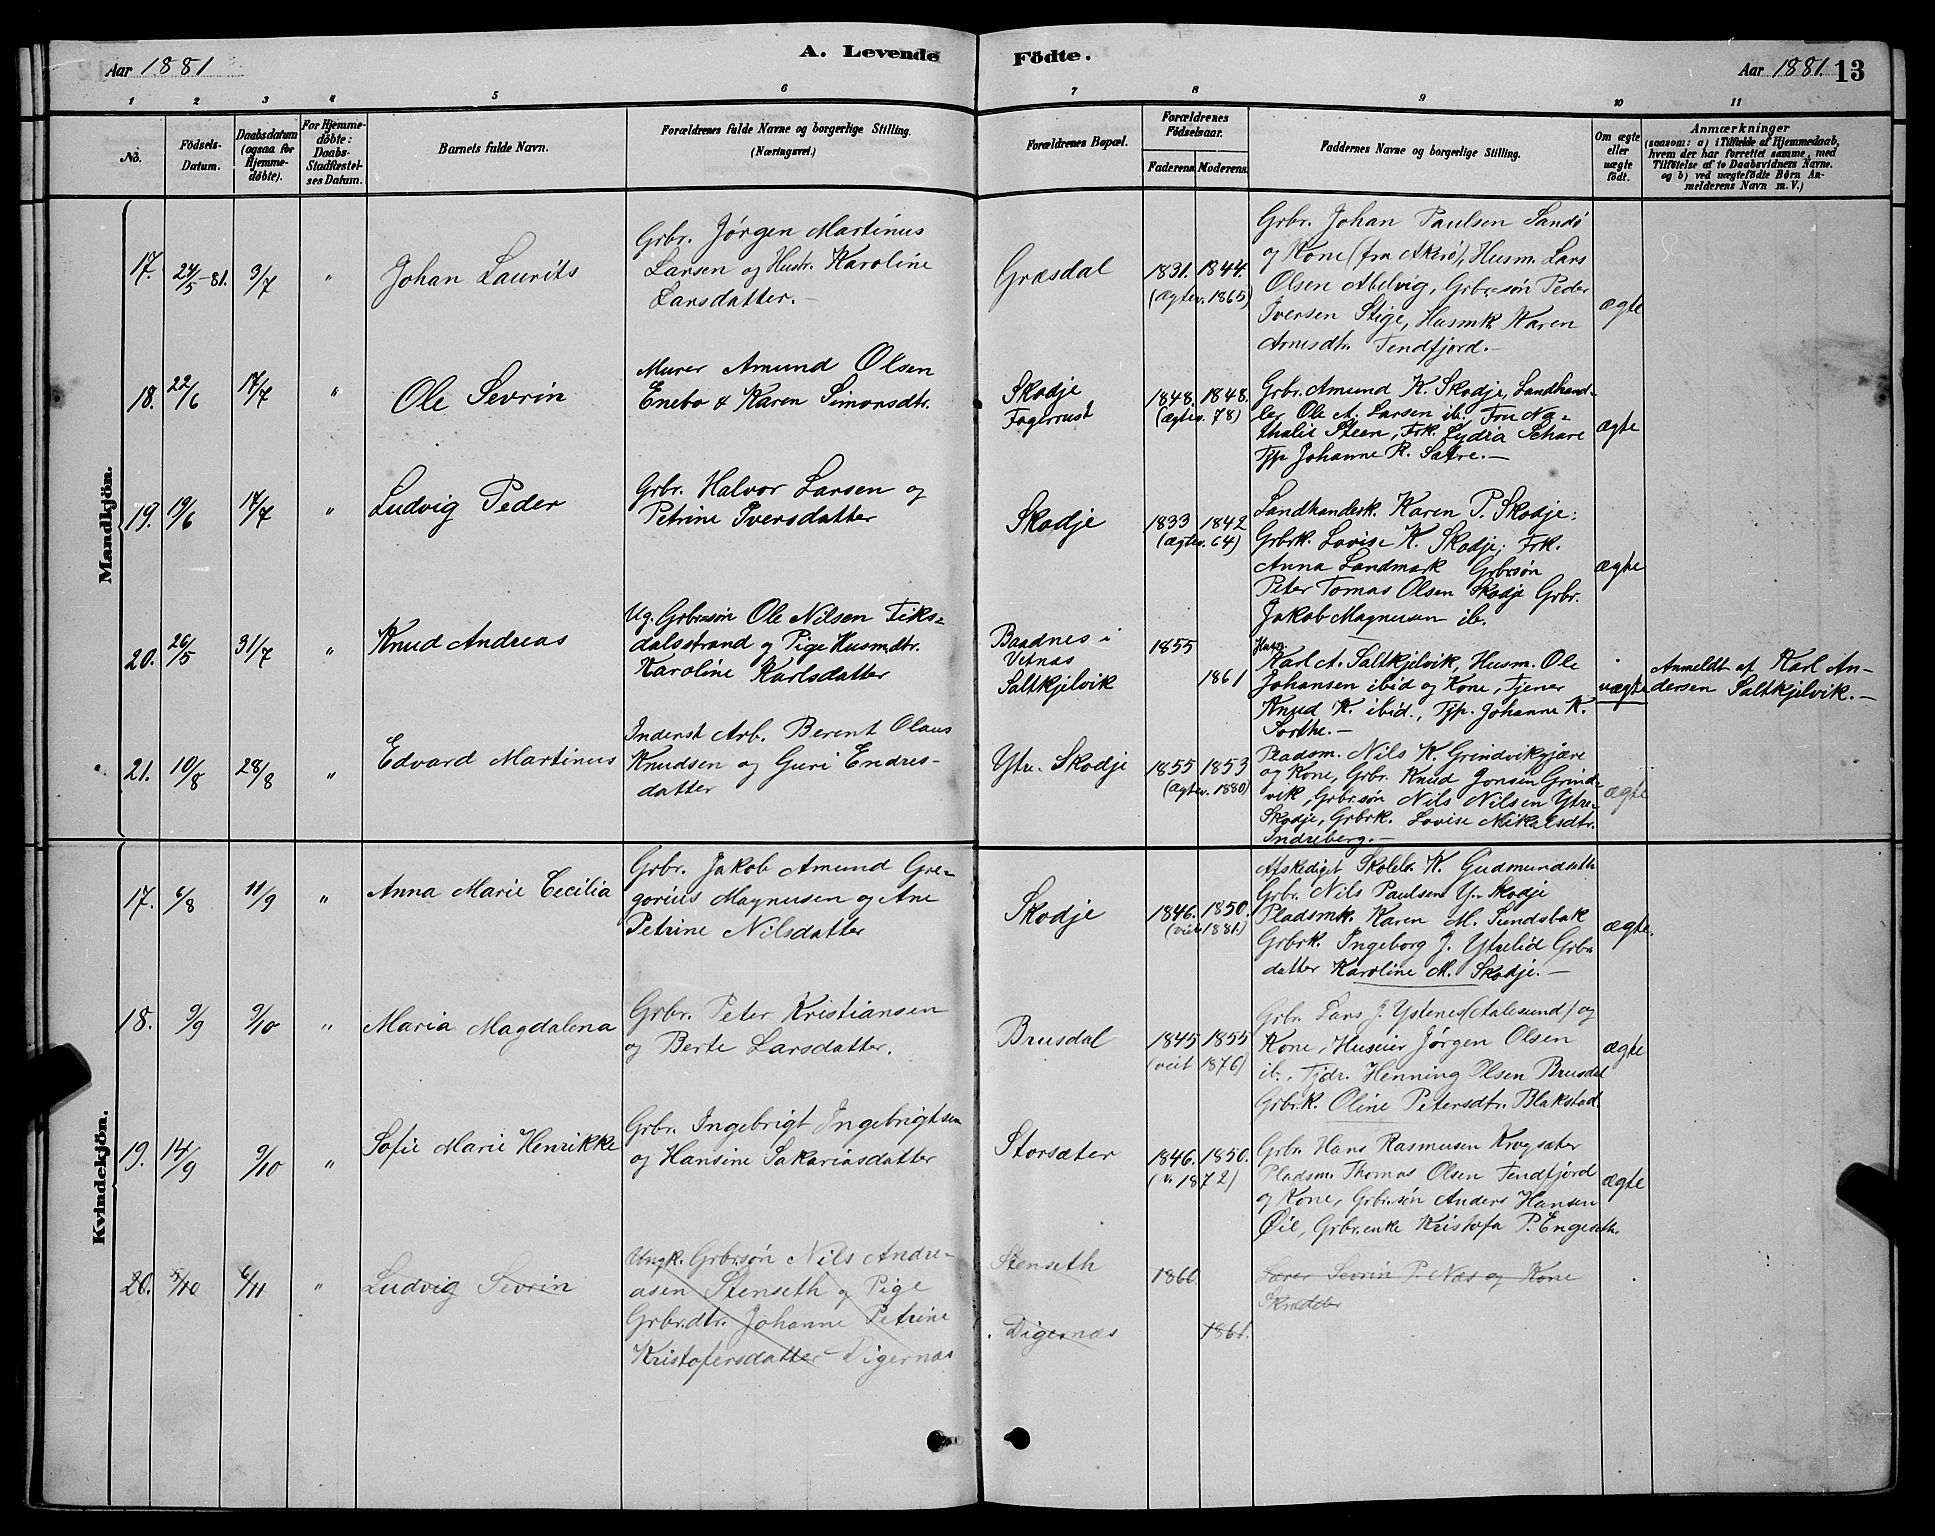 Aar 1881
A. Levende Födte.
Aar 1881. 13
1 2 3 4 5 6 7 8 9 10 11
No.
Födsels-
Datum.
Daabsdatum
(ogsaa for
Hjemme-
döbte).
For Hjemme-
döbte:
Daabs-
Stadfæstel-
ses Datum.
Barnets fulde Navn.
Forældrenes fulde Navne og borgerlige Stilling.
(Næringsvei.)
Forældrenes Bopæl.
Forældrenes
Födselsaar.
Faderens Moderens
Faddernes Navne og borgerlige Stilling.
Om ægte
eller
uægte
födt.
Anmærkninger
(saasom: a) i Tilfælde af Hjemmedaab,
hvem der har forrettet samme, med
Tilföielse af to Daabsvidners Navne.
og b) ved uægtefödte Börn An-
melderens Navn m. V.)
Mandkjön.
17. 24/5-81. 3/7 " Johan Laurits
Grbr. Jørgen Martinus
Larsen og Hustr. Karoline
Larsdatter. –
Græsdal
1831. 1844.
(Ægtev. 1865)
Grbr. Johan Paulsen Sandö
og Kone (fra Akerö), Husm. Lars
Olsen Abelvig, Grbr.søn Peder
Iversen Stige, Husmk. Karen
Arnesdtr. Tendfjord. –
ægte
18. 22/6 17/7 " Ole Sevrin
Murer Amund Olsen
Enebo & Karen Simonsdtr.
Skodje
Fagerrust
1848. 1848.
(Ægtev. 78)
Grbr. Amund K. Skodje, Landhand-
ler Ole A. Larsen ib. Fru Na-
thalie Steen, Frk. Lydia Schare
Tjp Johanne R. Sætre. –
ægte
19. 19/6 17/7 " Ludvig Peder
Grbr. Halvor Larsen og
Petrine Iversdatter
Skodje
1833 1842
(Ægtev. 64)
Landhandlerk. Karen P. Skodje;
Grbrk. Lovise K. Skodje; Frk.
Anna Landmark Grbrsön
Peter Tomas Olsen Skodje Grbr.
Jakob Magnusen ib.
ægte
20. 26/5 31/7 " Knud Andreas
Ug. Grbrsøn Ole Nilsen Fiks-
dalsstrand og Pige Husm.dtr.
Karoline Karlsdatter
Baadnes i
Vetnæs
Saltkjelvik
1855
1861
Husm.
Karl A. Saltkjelvik, Husm. Ole
Johansen ibid og Kone, Tjener
Knud K. ibid., Tjp. Johanne K.
Sorthe. –
uægte
Anmeldt af Karl An-
dersen Saltkjelvik. –
21. 10/8 28/8 " Edvard Martinus
Inderst Arb. Berent Olaus
Knudsen og Guri Endres-
datter
Ytr. Skodje
1855 1853
(Ægtev. 1880)
Pladsm. Nils K. Grindvikgjære
og Kone, Grbr. Knud Jonsen Grind-
vik, Grbr.søn Nils Nilsen Ytre-
Skodje, Grbrk. Lovise Nikolsdtr.
Indreberg. –
ægte
Kvindekjön.
17. 6/8 11/9 " Anna Marie Cecilia
Grbr. Jakob Amund Gre-
gorius Magnusen og Ane
Petrine Nilsdatter
Skodje
1846. 1850.
(viet 1881.)
Afskediget Skolelr. K. Gudmundsæth
Grbr. Nils Paulsen Y. Skodje
Pladsmk. Karen M. Sundsbak
Grbrk. Ingeborg J. Ytrelid Grbr
datter Karoline M. Skodje. –
ægte.
18. 9/9 9/10 " Maria Magdalena
Grbr. Peter Kristiansen
og Berte Larsdatter.
Brusdal
1845 1855
(viet 1876)
Grbr. Lars J. Ystenes (Aalesund) og
Kone, Huseier Jørgen Olsen
ib., Tjdr. Henning Olsen Brusdal
Grbrk. Oline Petersdtr. Blakstad.
ægte
19. 14/9 9/10 " Sofie Marie Henrikke
Grbr. Ingebrigt Ingebrigtsen
og Hansine Sakariasdatter
Storsæter
1846. 1850.
(v. 1872)
Grbr. Hans Rasmusen Krogsæter
Pladsm. Thomas Olsen Tendfjord
og Kone, Grbr.søn Anders Hansen
Øie, Grbr.enke Kristofa P. Engeseth.
ægte
20. 5/10 6/11 " Ludvig Sevrin
Ungk. Grbrsøn Nils Andre-
asen Stenseth og Pige
Grbr.dtr. Johanne Petrine
Kristofersdatter Digernæs
Stenseth
Digernæs
1860
1861.
Lærer Sevrin P. Næs og Kone
Skrædder